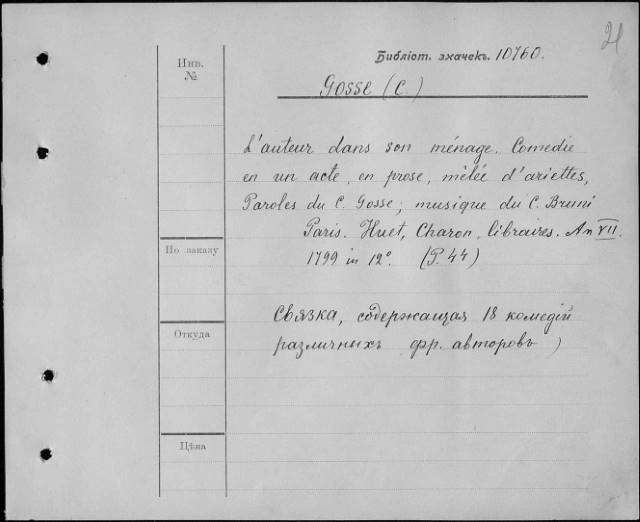 21
Библіот. эхачекъ. 10760.
Инв.
№
Gosse (C.)
L'auteur dans son ménage. Comedie
en un acte, en prose, mêlée d'ariettes,
Paroles du C. Gosse; musique du C. Bruni
Paris. Huet, Charon, libraires. An VII.
По заказу
1799 in 12°. (P. 44)
Связка, содержащая 18 комедій
Откуда
различныхъ фр. авторовъ)
Цѣна